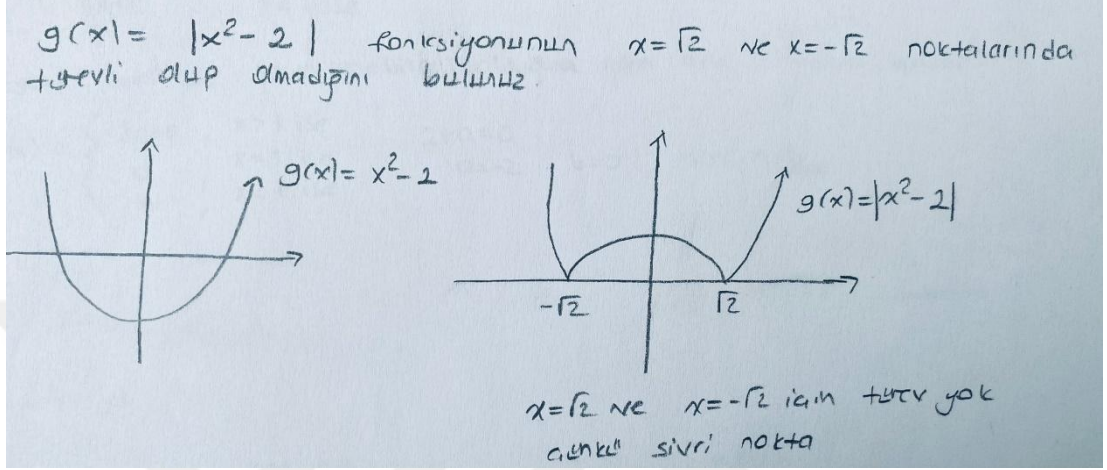 g(x) = |x²- 2| fonksiyonunun x=√2 ve x=-√2 noktalarında
türevli olup olmadığını bulunuz.
g(x)= x²- 2
g(x)=|x²- 2|
-√2
√2
x=√2 ve x=-√2 için türev yok
çünkü sivri nokta